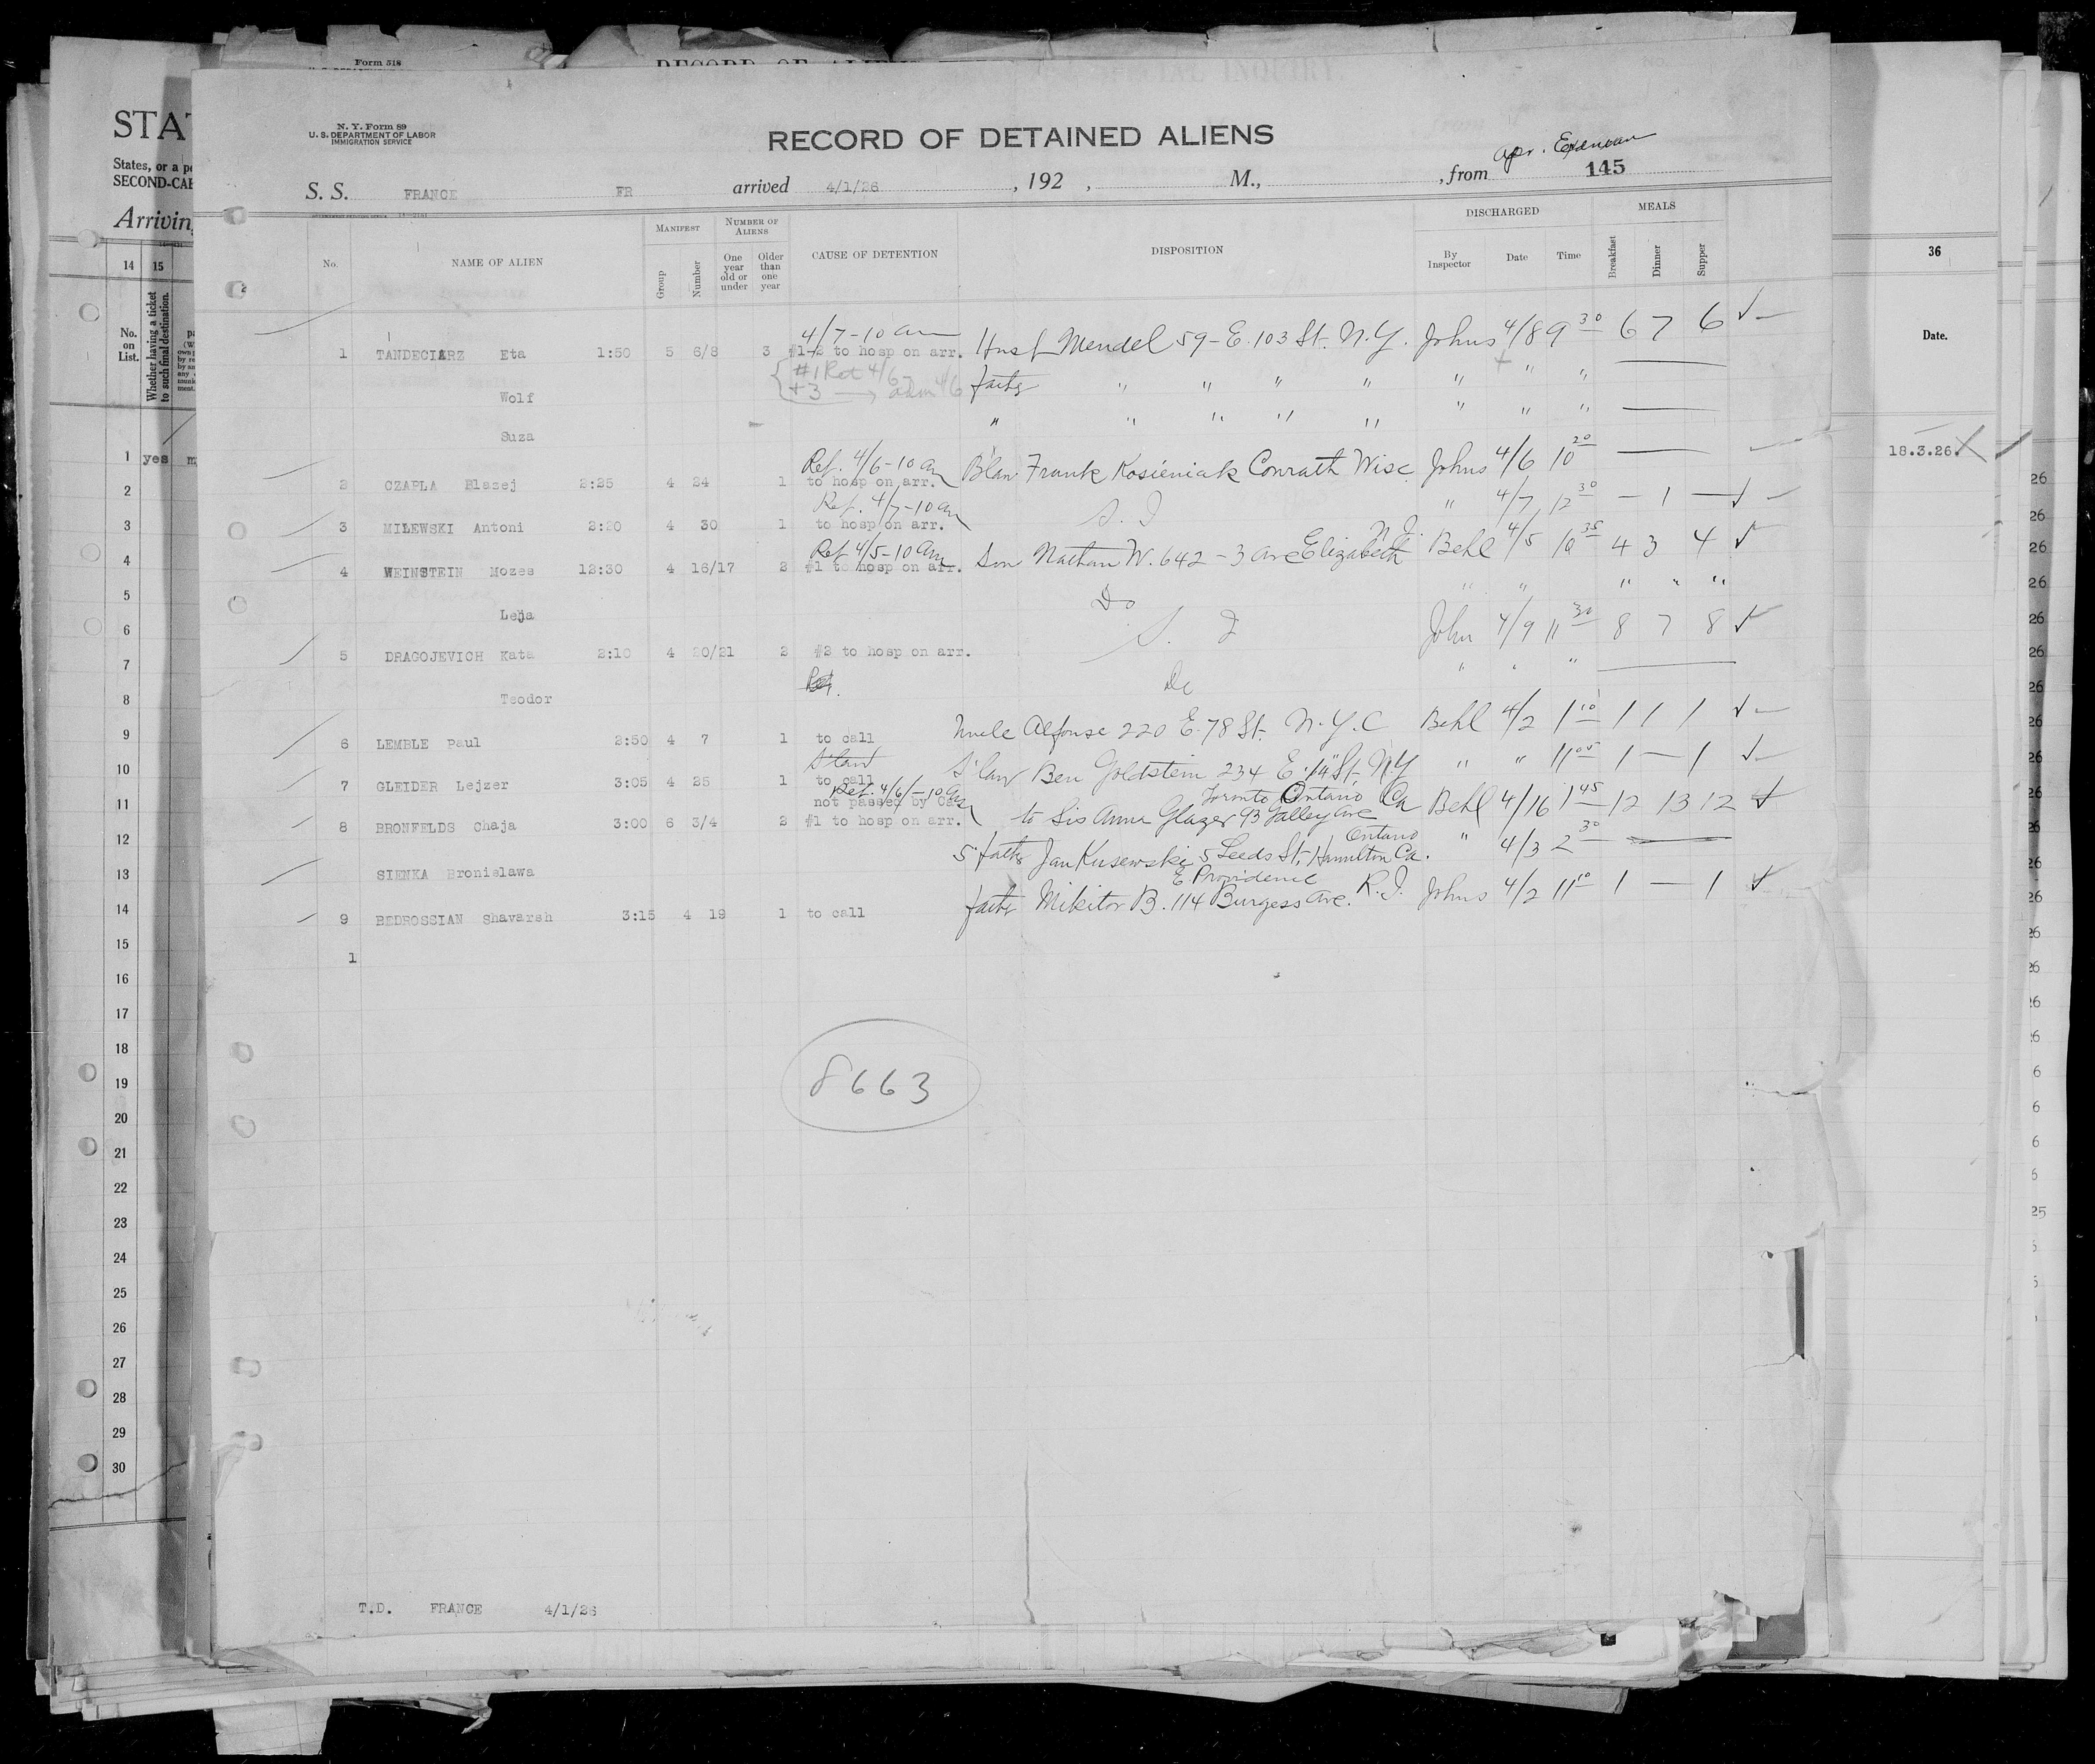 Form 518
RECORD OF ALIENS SPECIAL INQUIRY
STAT
States, or a pe
SECOND-CAB
Arriving
14 15
No. on List.
Whether having a ticket to such final destination.
N. Y. Form 89
U. S. DEPARTMENT OF LABOR
IMMIGRATION SERVICE
RECORD OF DETAINED ALIENS
S. S. FRANCE FR arrived 4/1/26, 192 , M., , from 145
No. NAME OF ALIEN MANIFEST Group Number NUMBER OF ALIENS One year old or under Older than one year CAUSE OF DETENTION DISPOSITION DISCHARGED By Inspector Date Time MEALS Breakfast Dinner Supper
4/7-10 am
1 TANDECIARZ Eta 1:50 5 6/8 3 #1-3 to hosp on arr. Husb Mendel 59-E.103 St. N.Y. Johns 4/8 9 30 6 7 6 ✓
#1 Ret 4/6 father " " " " " " "
+3 → adm 4/6
Wolf
" " " " " " " "
Suza
Ret. 4/6-10 am
2 CZAPLA Blazej 2:25 4 24 1 to hosp on arr. Blaw Frank Kosieniak Conrath Wisc. Johns 4/6 10 20 —
Ret. 4/7-10 am
3 MILEWSKI Antoni 2:20 4 30 1 to hosp on arr. S. I " 4/7 12 30 — 1 — ✓
Ret 4/5-10 am
4 WEINSTEIN Mozes 12:30 4 16/17 2 #1 to hosp on arr. Son Nathan W. 642-3 ave Elizabeth N.J. Behl 4/5 10 35 4 3 4 ✓
Leja Do " " " " "
5 DRAGOJEVICH Kata 2:10 4 20/21 2 #2 to hosp on arr. S. I John 4/9 11 30 8 7 8 ✓
Ret.
Teodor Do " " "
6 LEMBLE Paul 2:50 4 7 1 to call Uncle Alfonse 220 E. 78 St. N.Y.C Behl 4/2 1 10 1 1 1 ✓
S'law
7 GLEIDER Lejzer 3:05 4 25 1 to call S'law Ben Goldstein 234 E. 14" St. N.Y " " 11 05 1 — 1 ✓
Ret. 4/6-10 am
not passed by
8 BRONFELDS Chaja 3:00 6 3/4 2 #1 to hosp on arr. to Sis Anna Glazer 93 Galley ave Toronto Ontario Ca Behl 4/16 1 45 12 13 12 ✓
SIENKA Bronislawa S'father Jan Kusewski 5 Leeds St, Hamilton Ontario Ca. " 4/3 2 30
9 BEDROSSIAN Shavarsh 3:15 4 19 1 to call father Mikitor B. 114 Burgess ave. E Providence R.I. Johns 4/2 11 10 1 — 1 ✓
1
8663
T.D. FRANCE 4/1/26
1 yes
2
3
4
5
6
7
8
9
10
11
12
13
14
15
16
17
18
19
20
21
22
23
24
25
26
27
28
29
30
36
Date.
18.3.26.